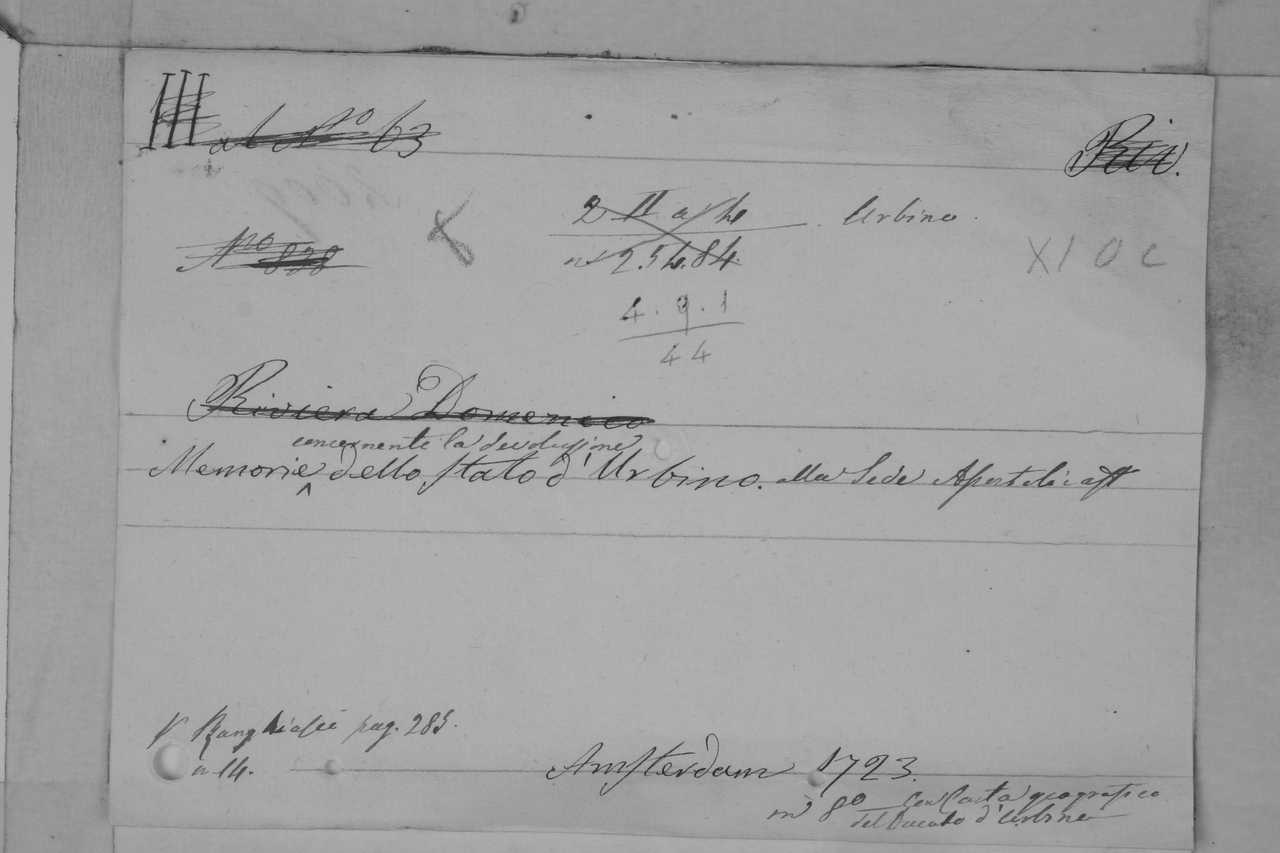 III al Nº 63
Riv.
2 II a
Urbino.
Nº 828
nº 25484
XI O C
4.9.1
44
Riviera Domenico
concernente la devoluzione
Memorie dello Stato d'Urbino. alla Sede Apostolica
V Ranghiasci pag. 285.
n 14.
Amsterdam 1723.
in 8º con Carta geografica
del Ducato d'Urbino